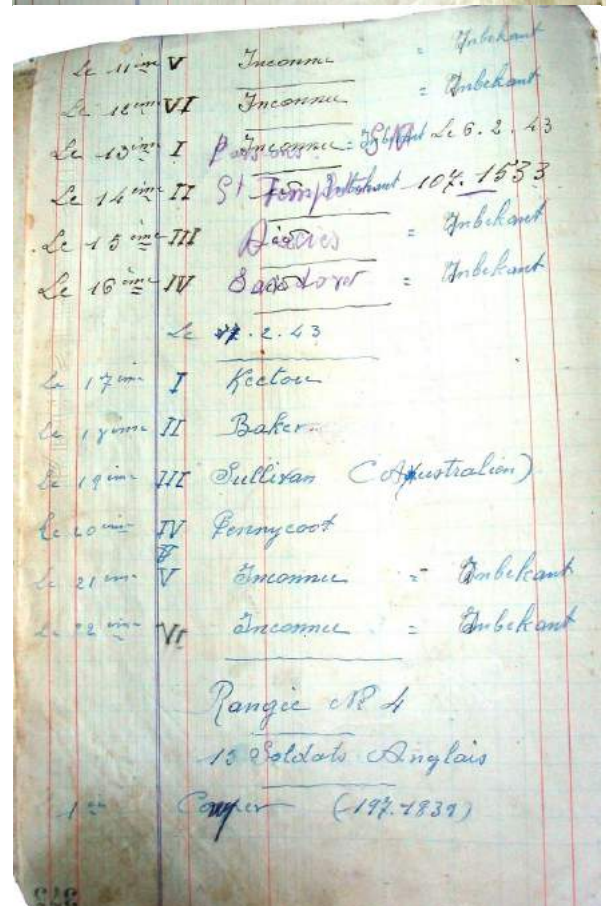 Le 11ème V Inconnu = Inbekant
Le 12ème VI Inconnu = Inbekant
Le 13ème I Inconnu = Le 6.2.43
Le 14ème II St 107.1533
Le 15ème III = Inbekant
Le 16ème IV = Inbekant
Le .2.43
Le 17ème I Keetou
Le 18ème II Baker
Le 19ème III Sullivan (Australien)
Le 20ème IV Pennycoot
Le 21ème V Inconnu = Inbekant
Le 22ème VI Inconnu = Inbekant
Rangée № 4
13 Soldats Anglais
1er (197.1839)